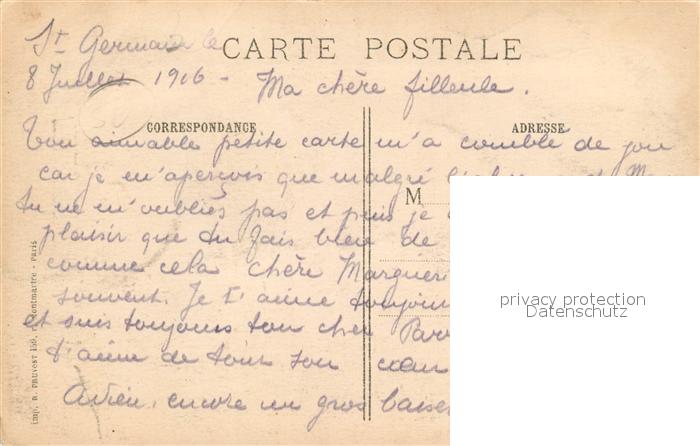 St Germain le
CARTE POSTALE
8 Juillet 1916 - Ma chère filleule.
CORRESPONDANCE
ADRESSE
Ton aimable petite carte m'a comblé de joie
car je m'aperçois que malgré
M
tu ne m'oublies pas et puis je
plaisir que tu fais bien de
comme cela chère Marguer
souvent. Je t'aime toujour
et suis toujours ton cher Parr
t'aime de tout son cœur
Adieu, encore un gros baiser
privacy protection
Datenschutz
Imp. D. PRUVOST 159, r. Montmartre - Paris